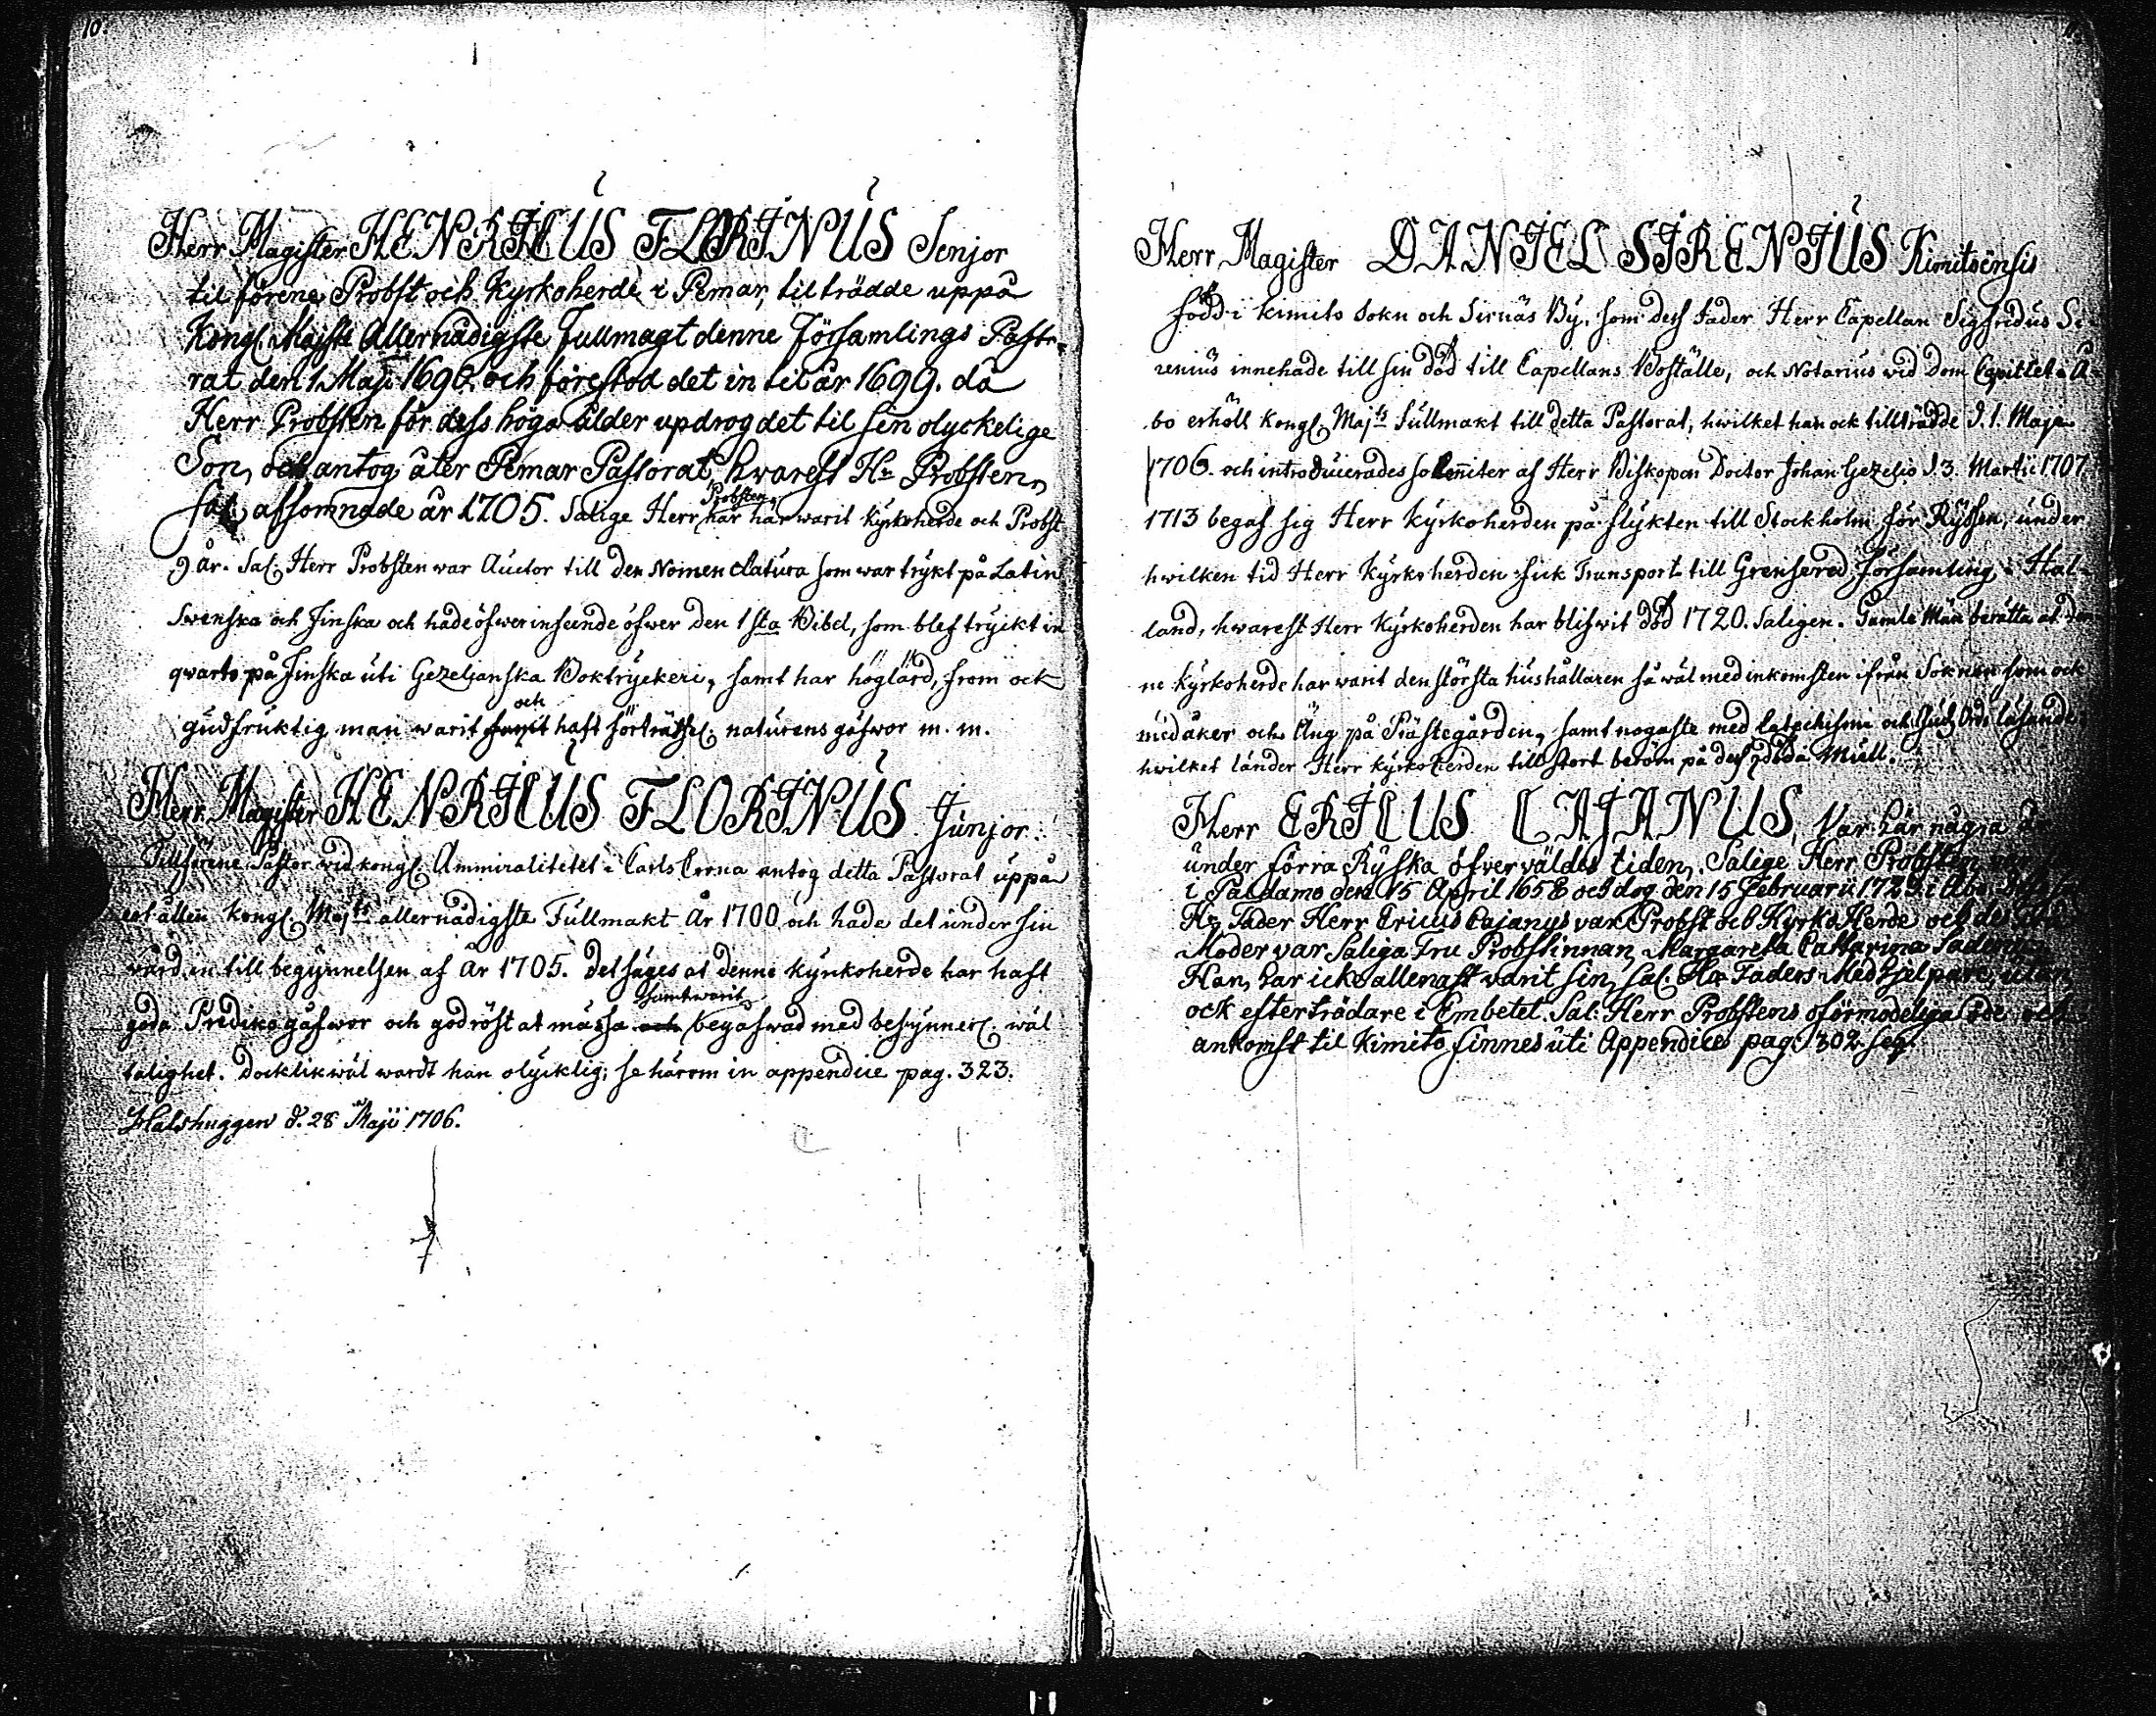 10.
Herr Magister HENRICUS FLORINUS Senjor
til förene Probst och Kyrkoherde i Pemar, tilträdde uppå
Kongl. Majsts Allernådigste Fullmagt denne Församlings Pasto-
rat den 1 Maji 1690. och förestod det in til år 1699. då
Herr Probsten för dess höga ålder updrog det til sin olyckelige
Son, och antog åter Pemar Pastorat, hvarest Hr Probsten
sal. afsomnade år 1705. Salige Herr Probsten har här warit Kyrkoherde och Probst
9 år. Sal. Herr Probsten war Auctor till den Nomenclatura som war trykt på Latin
Swenska och Finska och hade öfwerinseende öfwer den 1sta Bibel, som blef tryckt in
qvarto på Finska uti Gezelianska Boktryckeri, samt har höglärd, from ock
gudfruktig man warit och haft förträffel. naturens gåfwor m. m.
Herr Magister HENRICUS FLORINUS Junjor.
Tillförene Pastor wid kongl. Ammiralitetet i Carls Crona antog detta Pastorat uppå
erhållen Kongl. Majts allernådigste Fullmakt År 1700 och hade det under sin
wård in till begynnelsen af År 1705. Det säges at denne kyrkoherde har haft
goda Predikogåfwor och god röst at mässa och samt warit begåfwad med besynnerl. wäl
talighet. Docklikwäl wardt han olycklig; se härom in appendice pag. 323.
Halshuggen d. 28 Maji 1706.
Herr Magister DANIEL SIRENIUS Kimitoënsis
född i Kimito Sokn och Sirnäs By, som dess Fader Herr Capellan Sigfridus Si-
renius innehade till sin död till Capellans Boställe, och Notarius wid Dom Capitlet i Å-
bo erhölt Kongl. Majts Fullmakt till detta Pastorat, hwilket han ock tillträdde d. 1. Maji
1706. och introducerades solenniter af Herr Biskopen Doctor Johan Gezelio d. 3. Martii 1707.
1713 begaf sig Herr Kyrkoherden på flykten till Stockholm för Ryssen, under
hwilken tid Herr Kyrkoherden fick Transport till Grensered Församling i Hal-
land, hwarest Herr Kyrkoherden har blifwit död 1720. Saligen. Gamle Män berätta at den-
ne Kyrkoherde har warit den största hushållaren så wäl med inkomsten ifrån Soknen som ock
med åker och Äng på Prästegården, samt nogaste med Catechismi och Guds Ords läsande
hwilket länder Herr Kyrkoherden till stort beröm på dess döda Mull.
Herr ERICUS CAJANUS, Var här några år
under förra Ryska öfverväldes tiden. Salige Herr Probsten
i Paldamo den 15 April 1658 och dog den 15 Februarii 1723 i Åbo.
Hs Fader Herr Ericus Cajanus var Probst och KyrkoHerde och des
Moder var Saliga Fru Probstinnan Margareta Catharina
Han har icke allenast varit sin sal. Hr Faders Medhjelpare, utan
ock efterträdare i Embetet. Sal. Herr Probstens oförmodeliga öde och
ankomst til Kimito finnes uti Appendice pag. 302. seq.
11